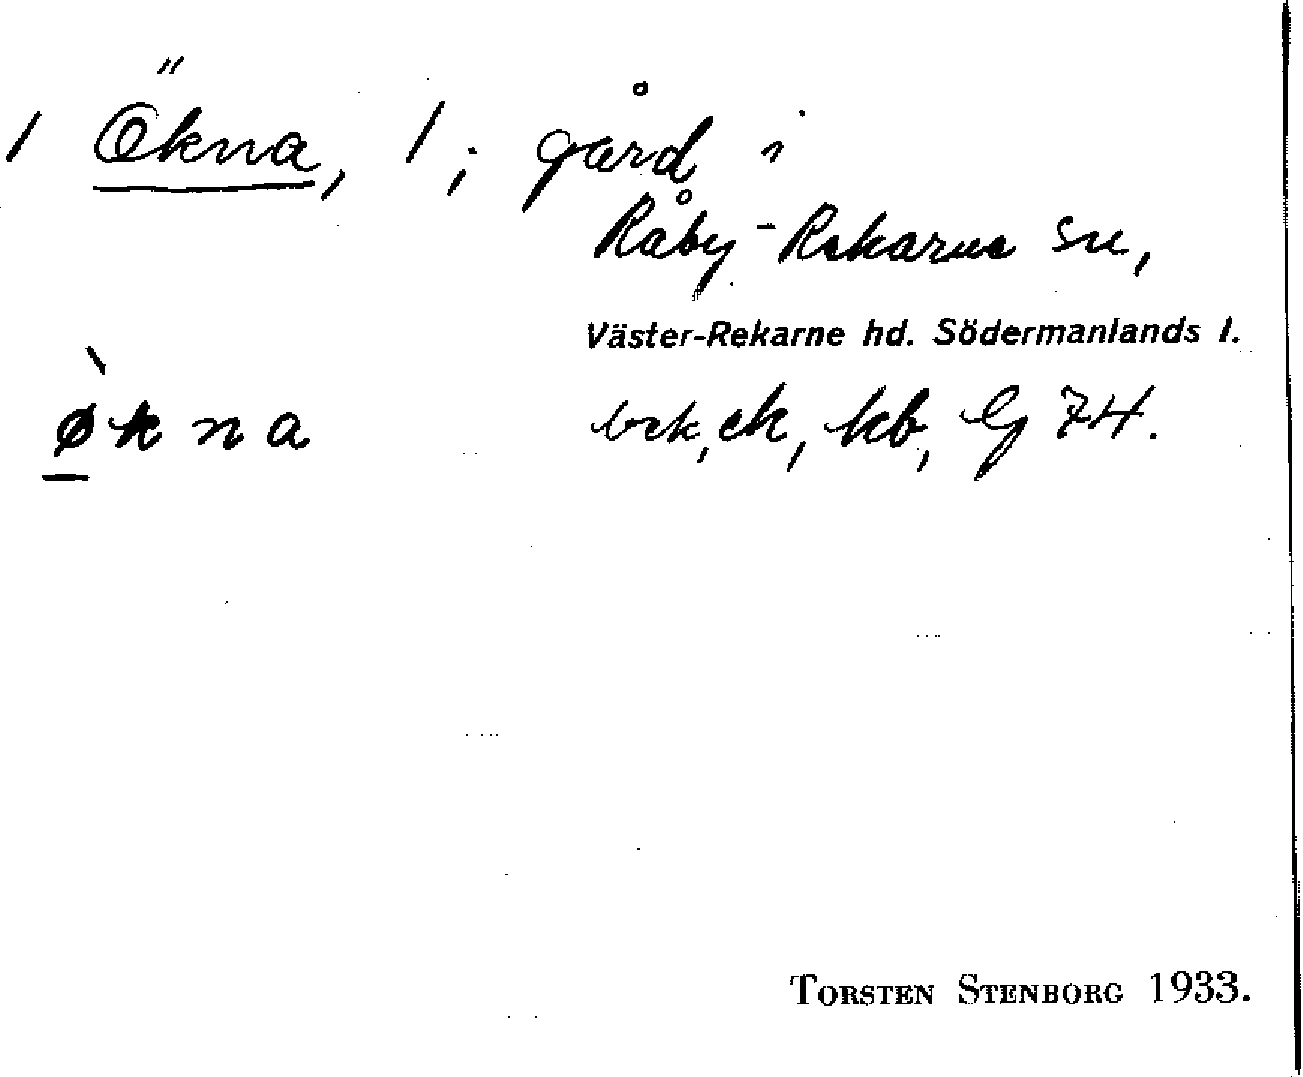 1 Ökna, 1; gård i
Råby-Rekarne sn,
Väster-Rekarne hd. Södermanlands l.
ø̱̀kna
ek, kb, G 74.
TORSTEN STENBORG 1933.